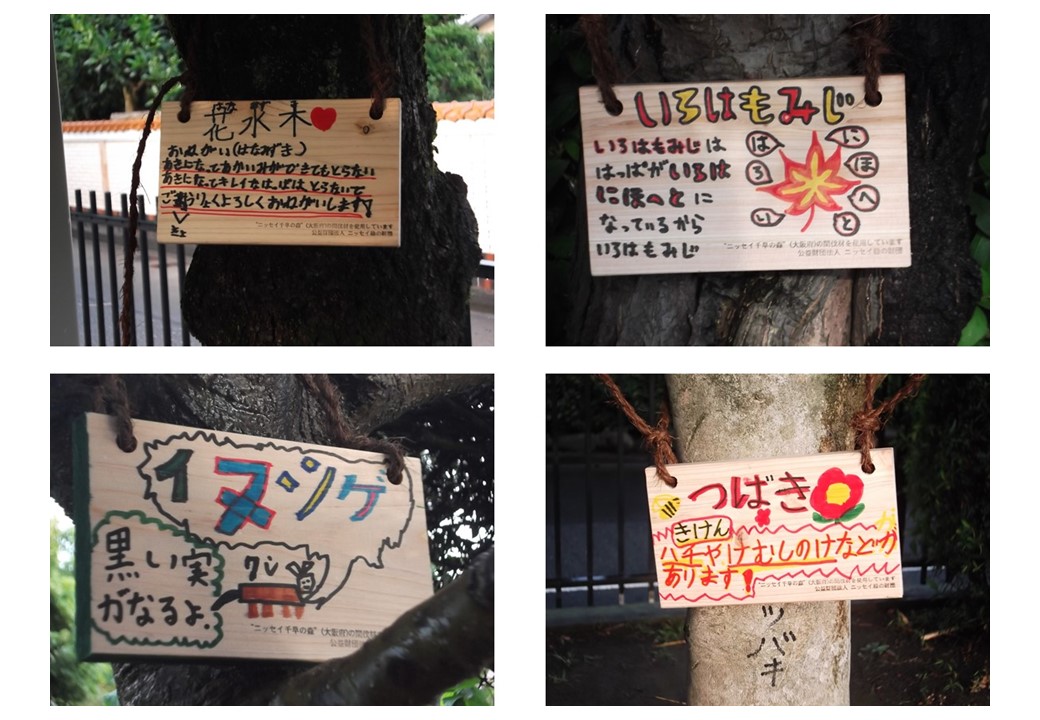 はな みず き
花水木
おねがい(はなみずき)
あきになってあかいみができてもとらない
あきになってキレイなはっぱは、とらないで
ごきょうりょくよろしくおねがいします!
きょ
"ニッセイ千早の森"(大阪府)の間伐材を使用しています
公益財団法人 ニッセイ緑の財団
いろはもみじ
いろはもみじは
はっぱがいろは
にほへとに
なっているから
いろはもみじ
は
ろ
い
に
ほ
へ
と
"ニッセイ千早の森"(大阪府)の間伐材を使用しています
公益財団法人 ニッセイ緑の財団
イヌツゲ
黒い実
がなるよ.
ワン
"ニッセイ千早の森"(大阪府)の間伐材
公益財団法人 ニッセイ
つばき
きけん
ハチやけむしのけなどが
あります!
"ニッセイ千早の森"(大阪府)の間伐材を使用しています
公益財団法人 ニッセイ緑の財団
ツバキ